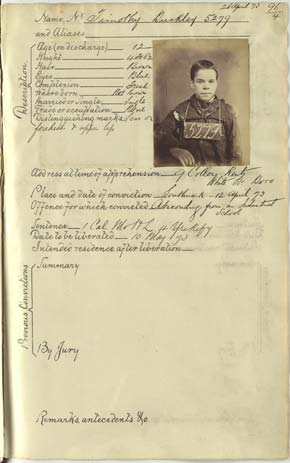 26 April 73 96
4
Name, No. Timothy Buckley 5279
and Aliases
Description
Age (on discharge) 12
Height
Hair Brown
Eyes Blue
Complexion Fresh
Where born Not known
Married or Single Single
Trade or occupation None
Distinguishing marks Scar on
forehead & upper lip
5279
Address at time of apprehension
White St. Boro
Place and date of conviction Southwark 12 April 73
Offence for which convicted Absconding from
School
Sentence 1 Cal
Date to be liberated May 73
Intended residence after liberation
Previous Convictions
Summary
By Jury
Remarks, antecedents &c.